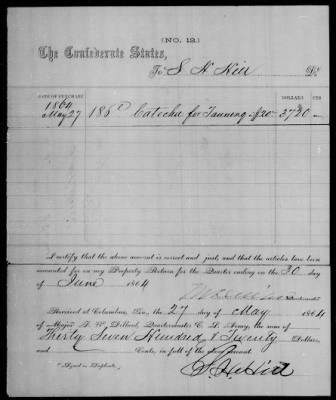 (NO. 12.)
The Confederate States,
To S H Hill Dr.
DATE OF PURCHASE. DOLLARS CTS
1864
May 27 186 Catechu for Tanning @ 20 - 3720 —
I certify that the above account is correct and just, and that the articles have been
accounted for on my Property Return for the Quarter ending on the 30 day
of June 1864
Received at Columbus, Ga., the 27 day of May 1864
of Major F. W. Dillard, Quartermaster C. S. Army, the sum of
Thirty Seven Hundred & Twenty Dollars,
and Cents, in full of the above account
(Signed in Duplicate.)
S H Hill